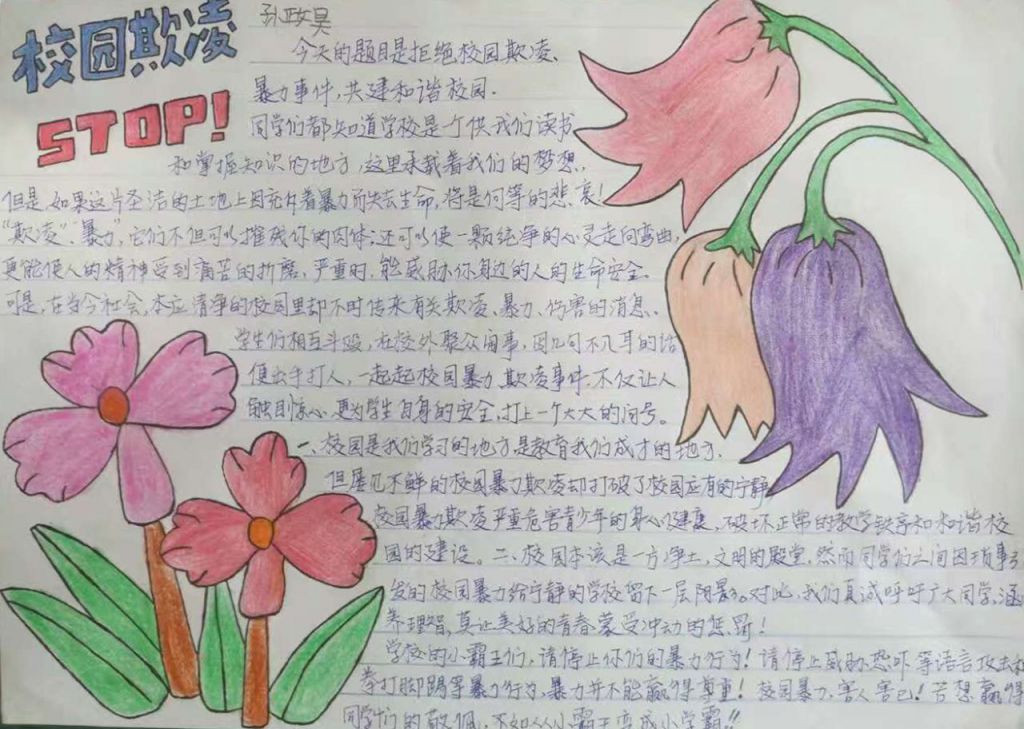 校园欺凌
STOP!
孙政昊
今天的题目是拒绝校园欺凌、
暴力事件，共建和谐校园.
同学们都知道学校是一个供我们读书
和掌握知识的地方，这里承载着我们的梦想.
但是如果这片圣洁的土地上因充斥着暴力而失去生命，将是何等的悲哀！
"欺凌"、"暴力"，它们不但可以摧残你的肉体；还可以使一颗纯净的心灵走向弯曲，
更能使人的精神受到痛苦的折磨，严重时，能威胁你身边的人的生命安全。
可是，在当今社会，本应清净的校园里却不时传来有关欺凌、暴力、伤害的消息.
学生们相互斗殴，在校外聚众闹事，因几句不入耳的话
便出手打人，一起起校园暴力欺凌事件，不仅让人
触目惊心，更为学生自身的安全，打上一个大大的问号。
一、校园是我们学习的地方，是教育我们成才的地方.
但屡见不鲜的校园暴力欺凌却打破了校园应有的宁静
校园暴力欺凌严重危害青少年的身心健康，破坏正常的教学秩序和和谐校
园的建设。二、校园本该是一方净土，文明的殿堂，然而同学们之间因琐事引
发的校园暴力给宁静的学校留下一层阴影。对此，我们真诚呼吁广大同学，涵
养理智，莫让美好的青春蒙受冲动的惩罚！
学校的小霸王们，请停止你们的暴力行为！请停止威胁、恐吓等语言攻击和
拳打脚踢等暴力行为，暴力并不能赢得尊重！校园暴力，害人害己！若想赢得
同学们的敬佩，不如从小霸王变成小学霸！！